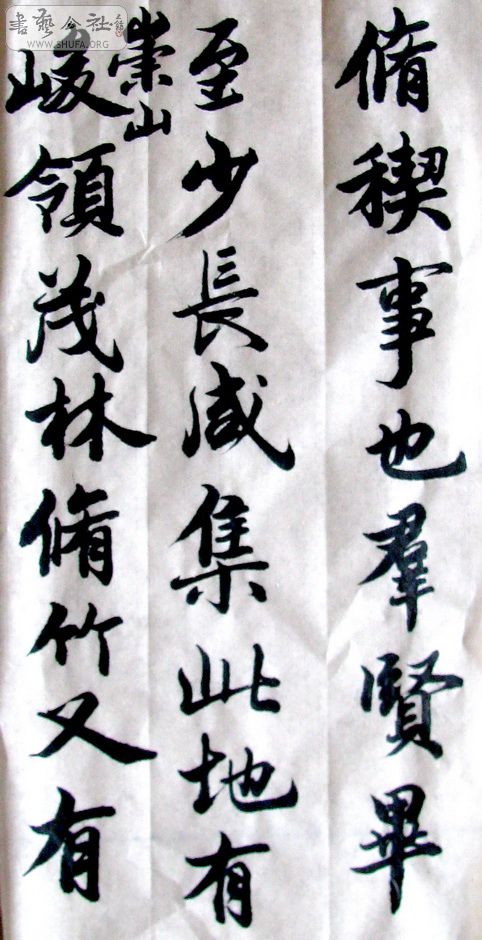 脩稧事也羣賢畢
至少長咸集此地有
崇山
峻領茂林脩竹又有
書藝公社
WWW.SHUFA.ORG